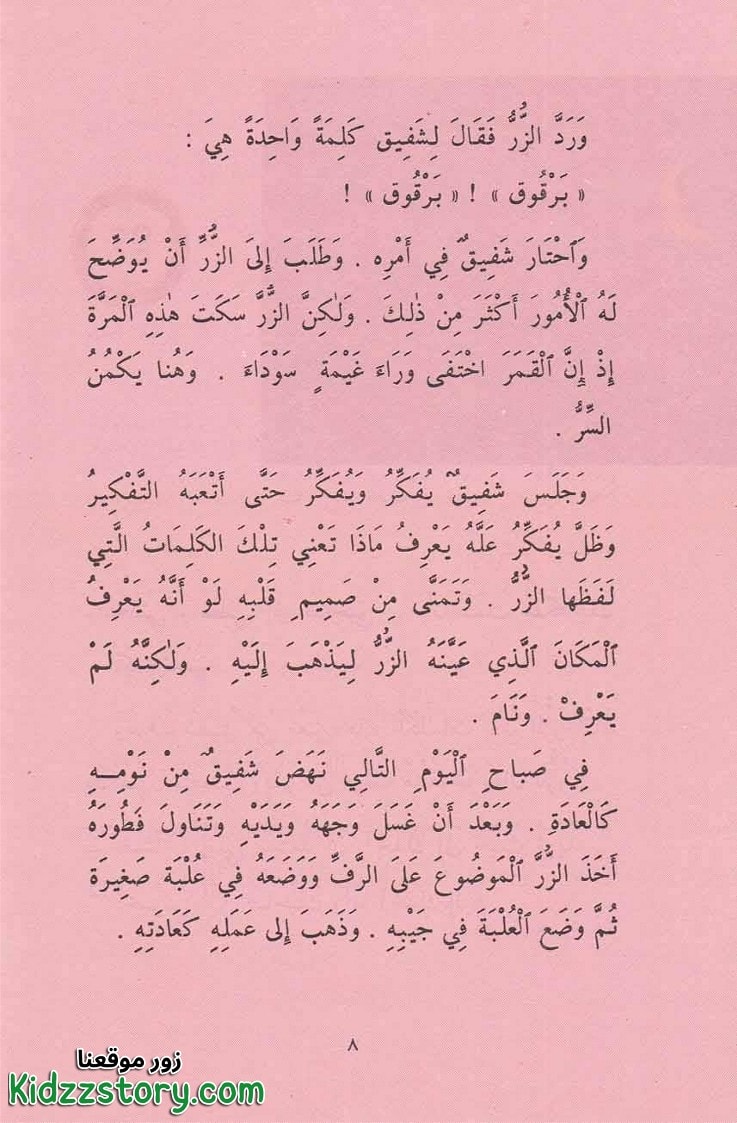 وَرَدَّ الزُّرُّ فَقَالَ لِشَفِيق كَلِمَةً وَاحِدَةً هِيَ :
« بَرْقُوق » ! « بَرْقُوق » !
وَٱحْتَارَ شَفِيقٌ فِي أَمْرِه . وَطَلَبَ إِلىَ الزُّرِّ أَنْ يُوَضِّحَ
لَهُ ٱلْأُمُورَ أَكْثَرَ مِنْ ذٰلِكَ . وَلٰكِنَّ الزُّرَّ سَكَتَ هٰذِهِ ٱلْمَرَّةَ
إِذْ إِنَّ ٱلْقَمَرَ اخْتَفَى وَرَاءَ غَيْمَةٍ سَوْدَاءَ . وَهُنا يَكْمُنُ
السِّرُّ .
وَجَلَسَ شَفِيقٌ يُفَكِّرُ وَيُفَكِّرُ حَتَّى أَتْعَبَهُ التَّفْكِيرُ
وَظَلَّ يُفَكِّرُ عَلَّهُ يَعْرِفُ مَاذَا تَعْنِي تِلْكَ الكَلِمَاتُ الَّتِي
لَفَظَها الزُّرُّ . وَتَمَنَّى مِنْ صَمِيمِ قَلْبِهِ لَوْ أَنَّهُ يَعْرِفُ
ٱلْمَكَانَ ٱلَّذِي عَيَّنَهُ الزُّرُّ لِيَذْهَبَ إِلَيْهِ . وَلٰكِنَّهُ لَمْ
يَعْرِفْ . وَنَامَ .
فِي صَبَاحِ ٱلْيَوْمِ التَّالِي نَهَضَ شَفِيقٌ مِنْ نَوْمِـــهِ
كَالْعَادَةِ . وَبَعْدَ أَنْ غَسَلَ وَجَهَهُ وَيَدَيْهِ وَتَنَاوَلَ فَطُورَهُ
أَخَذَ الزُّرَّ ٱلْمَوضُوعَ عَلَىَ الرَّفِّ وَوَضَعَهُ فِي عُلْبَة صَغِيرَة
ثُمَّ وَضَعَ ٱلْعُلْبَةَ فِي جَيْبِهِ . وَذَهَبَ إِلى عَمَلِهِ كَعَادَتِهِ .
٨
زور موقعنا
Kidzzstory.com